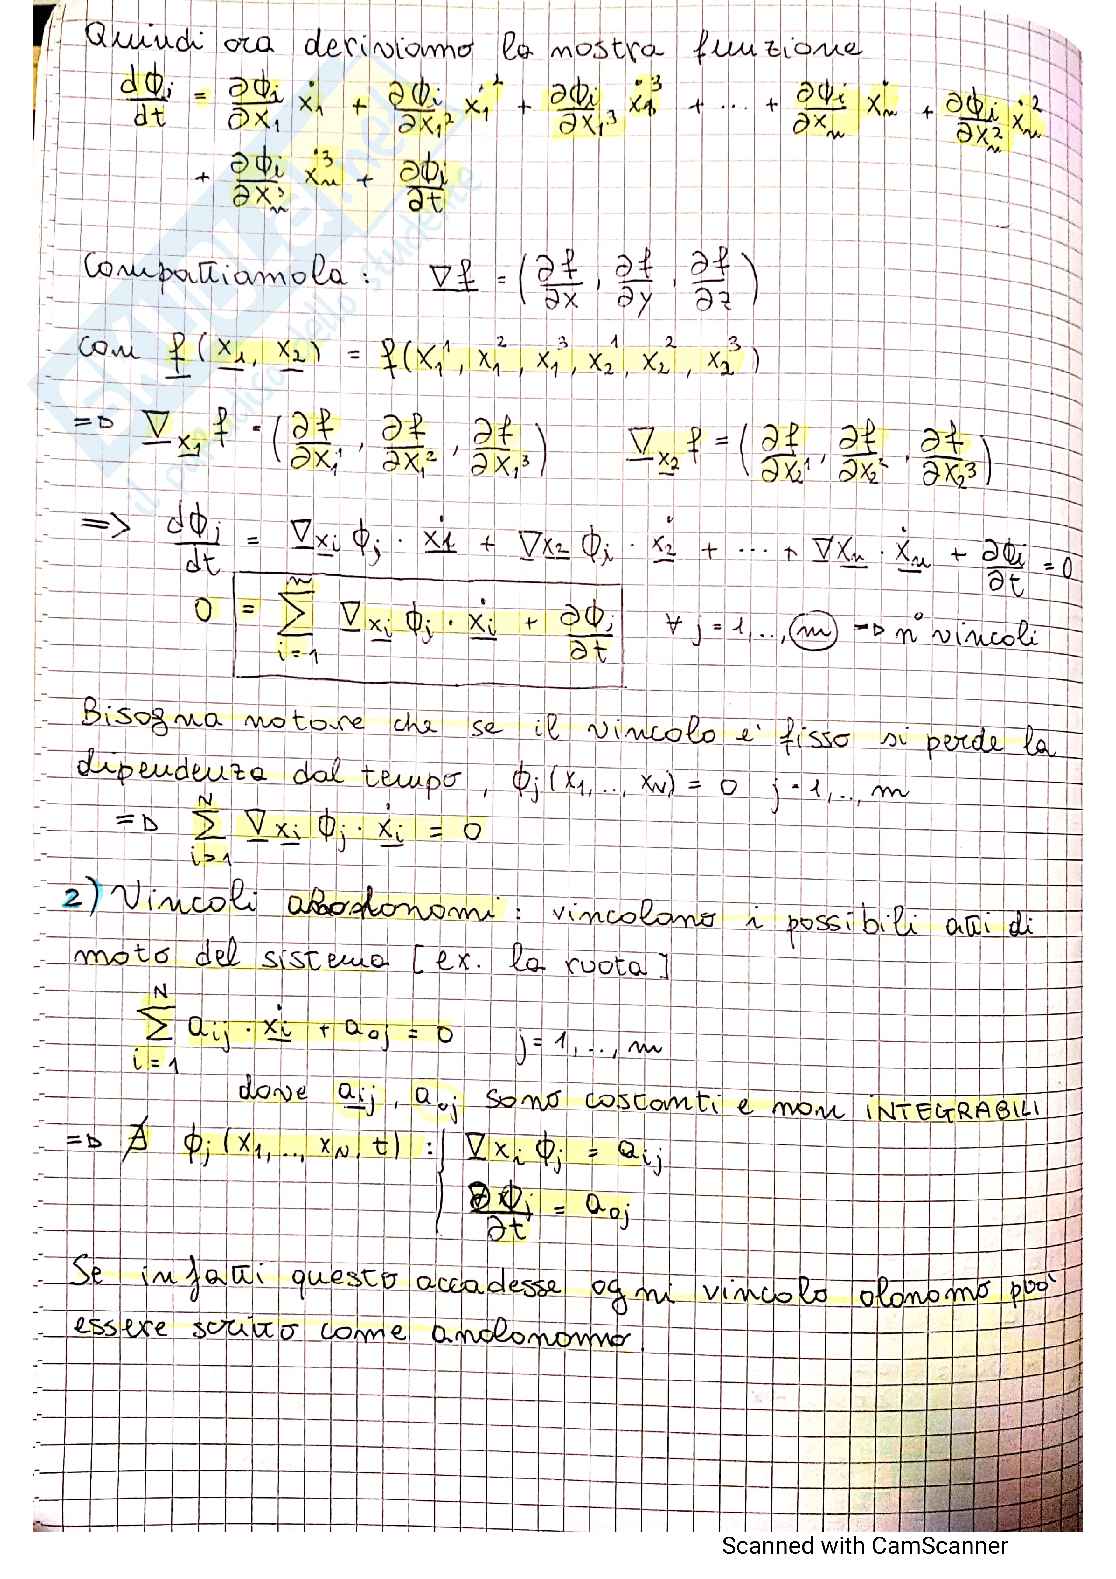 Quindi ora deriviamo la nostra funzione
dϕj/dt = ∂ϕi/∂x₁ ẋ₁ + ∂ϕi/∂x₁² ẋ₁² + ∂ϕi/∂x₁³ ẋ₁³ + ... + ∂ϕi/∂xₙ ẋₙ + ∂ϕi/∂xₙ² ẋₙ²
+ ∂ϕi/∂xₙ³ ẋₙ³ + ∂ϕi/∂t
Compattiamola: ∇f = (∂f/∂x, ∂f/∂y, ∂f/∂z)
con f(x₁, x₂) = f(x₁¹, x₁², x₁³, x₂¹, x₂², x₂³)
=> ∇x₁ f = (∂f/∂x₁¹, ∂f/∂x₁², ∂f/∂x₁³) ∇x₂ f = (∂f/∂x₂¹, ∂f/∂x₂², ∂f/∂x₂³)
=> dϕj/dt = ∇xi ϕj · ẋ1 + ∇x2 ϕi · ẋ2 + ... + ∇xn · ẋn + ∂ϕi/∂t = 0
0 = Σ i=1 n ∇xi ϕj · ẋi + ∂ϕj/∂t ∀ j = 1,.., m => n° vincoli
Bisogna notare che se il vincolo e' fisso si perde la
dipendenza dal tempo, ϕj(x1,.., xN) = 0 j = 1,.., m
=> Σ i=1 N ∇xi ϕj · ẋi = 0
2) Vincoli anolonomi: vincolano i possibili atti di
moto del sistema [ex. la ruota]
Σ i=1 N aij · ẋi + a0j = 0 j = 1,.., m
dove aij, a0j sono costanti e non INTEGRABILI
=> ∄ ϕj(x1,.., xN, t) : { ∇xi ϕj = aij
∂ϕj/∂t = a0j
Se infatti questo accadesse ogni vincolo olonomo può
essere scritto come anolonomo.
Scanned with CamScanner